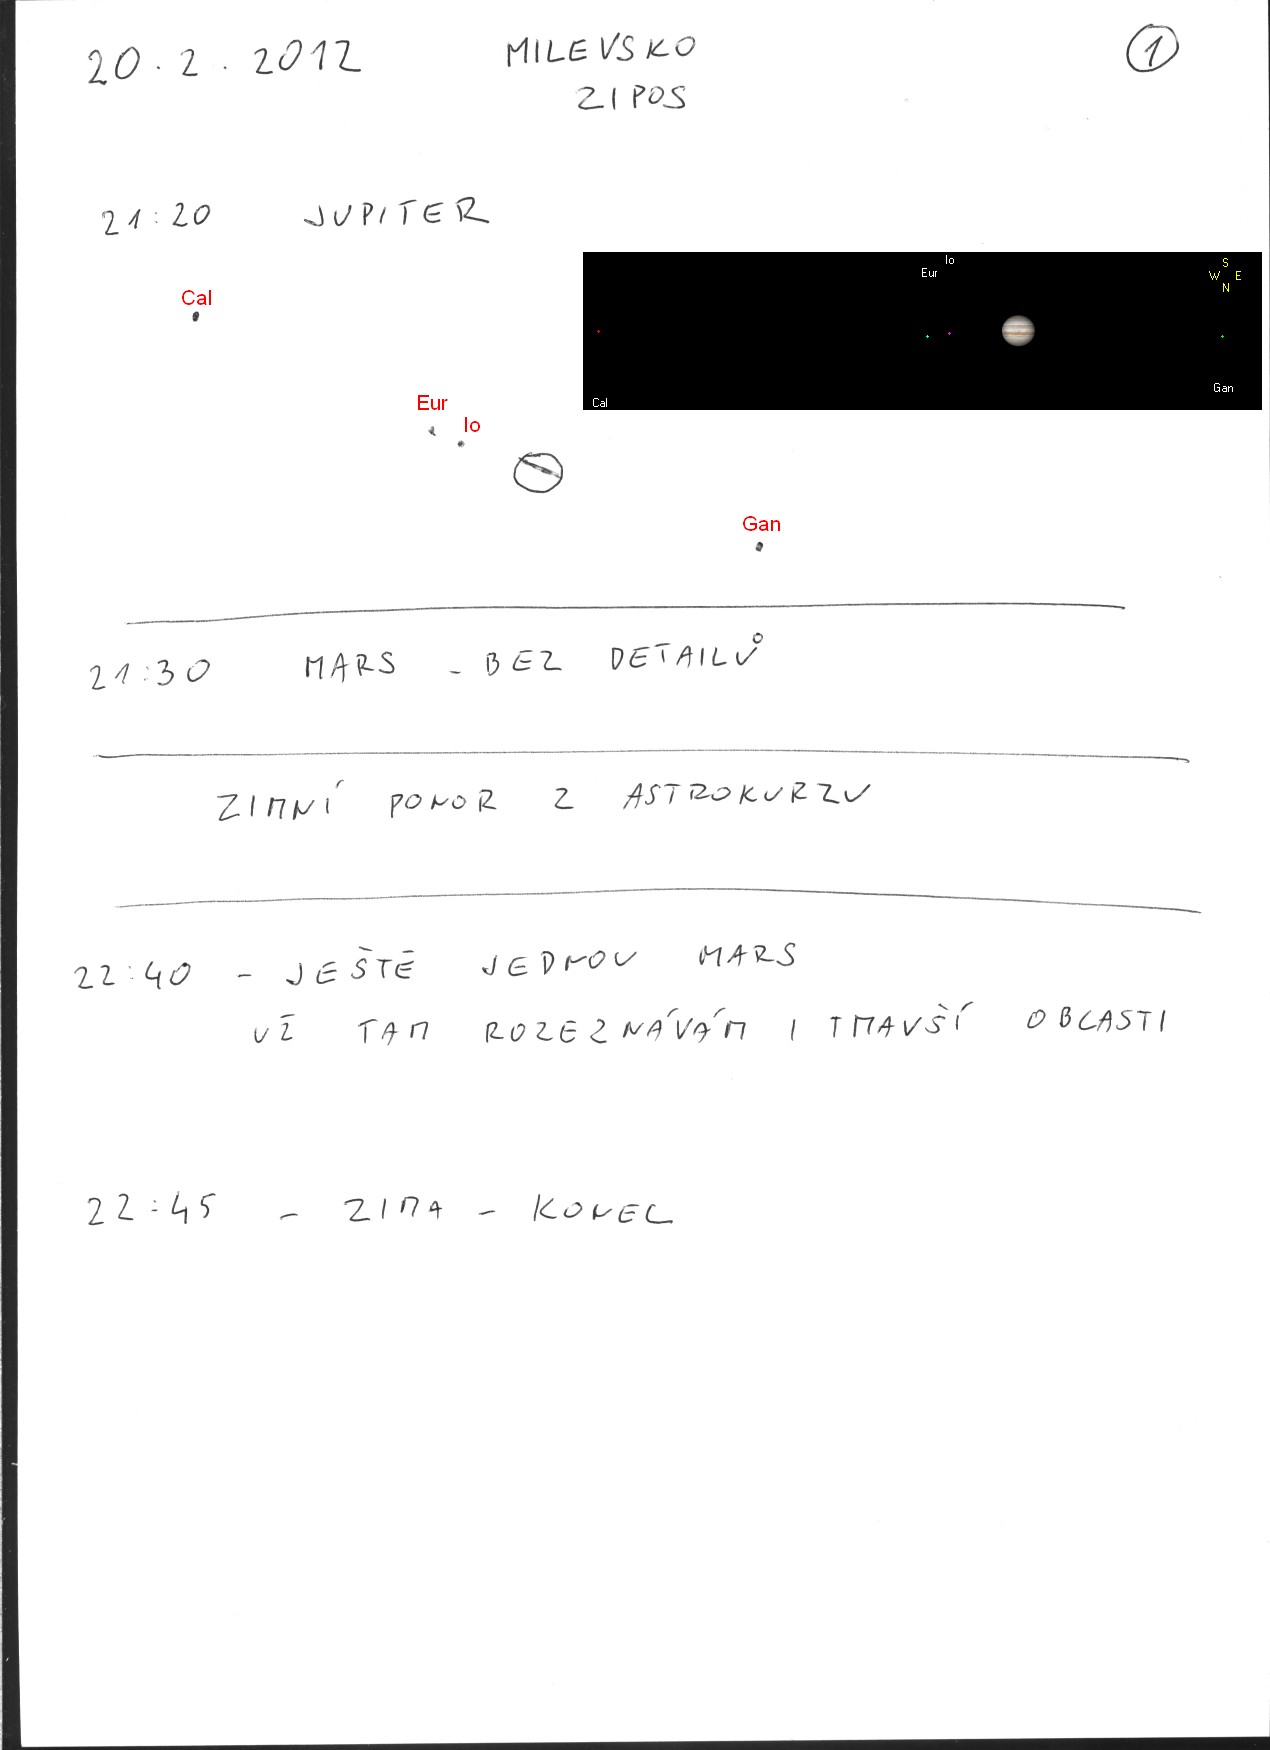 20.2.2012
MILEVSKO
ZIPOS
1
21:20 JUPITER
Cal
Eur
Io
Gan
Io
Eur
S
W E
N
Gan
Cal
21:30 MARS - BEZ DETAILŮ
ZIMNÍ PONOR Z ASTROKURZU
22:40 - JEŠTĚ JEDNOU MARS
UŽ TAM ROZEZNÁVÁM I TMAVŠÍ OBLASTI
22:45 - ZIMA - KONEC